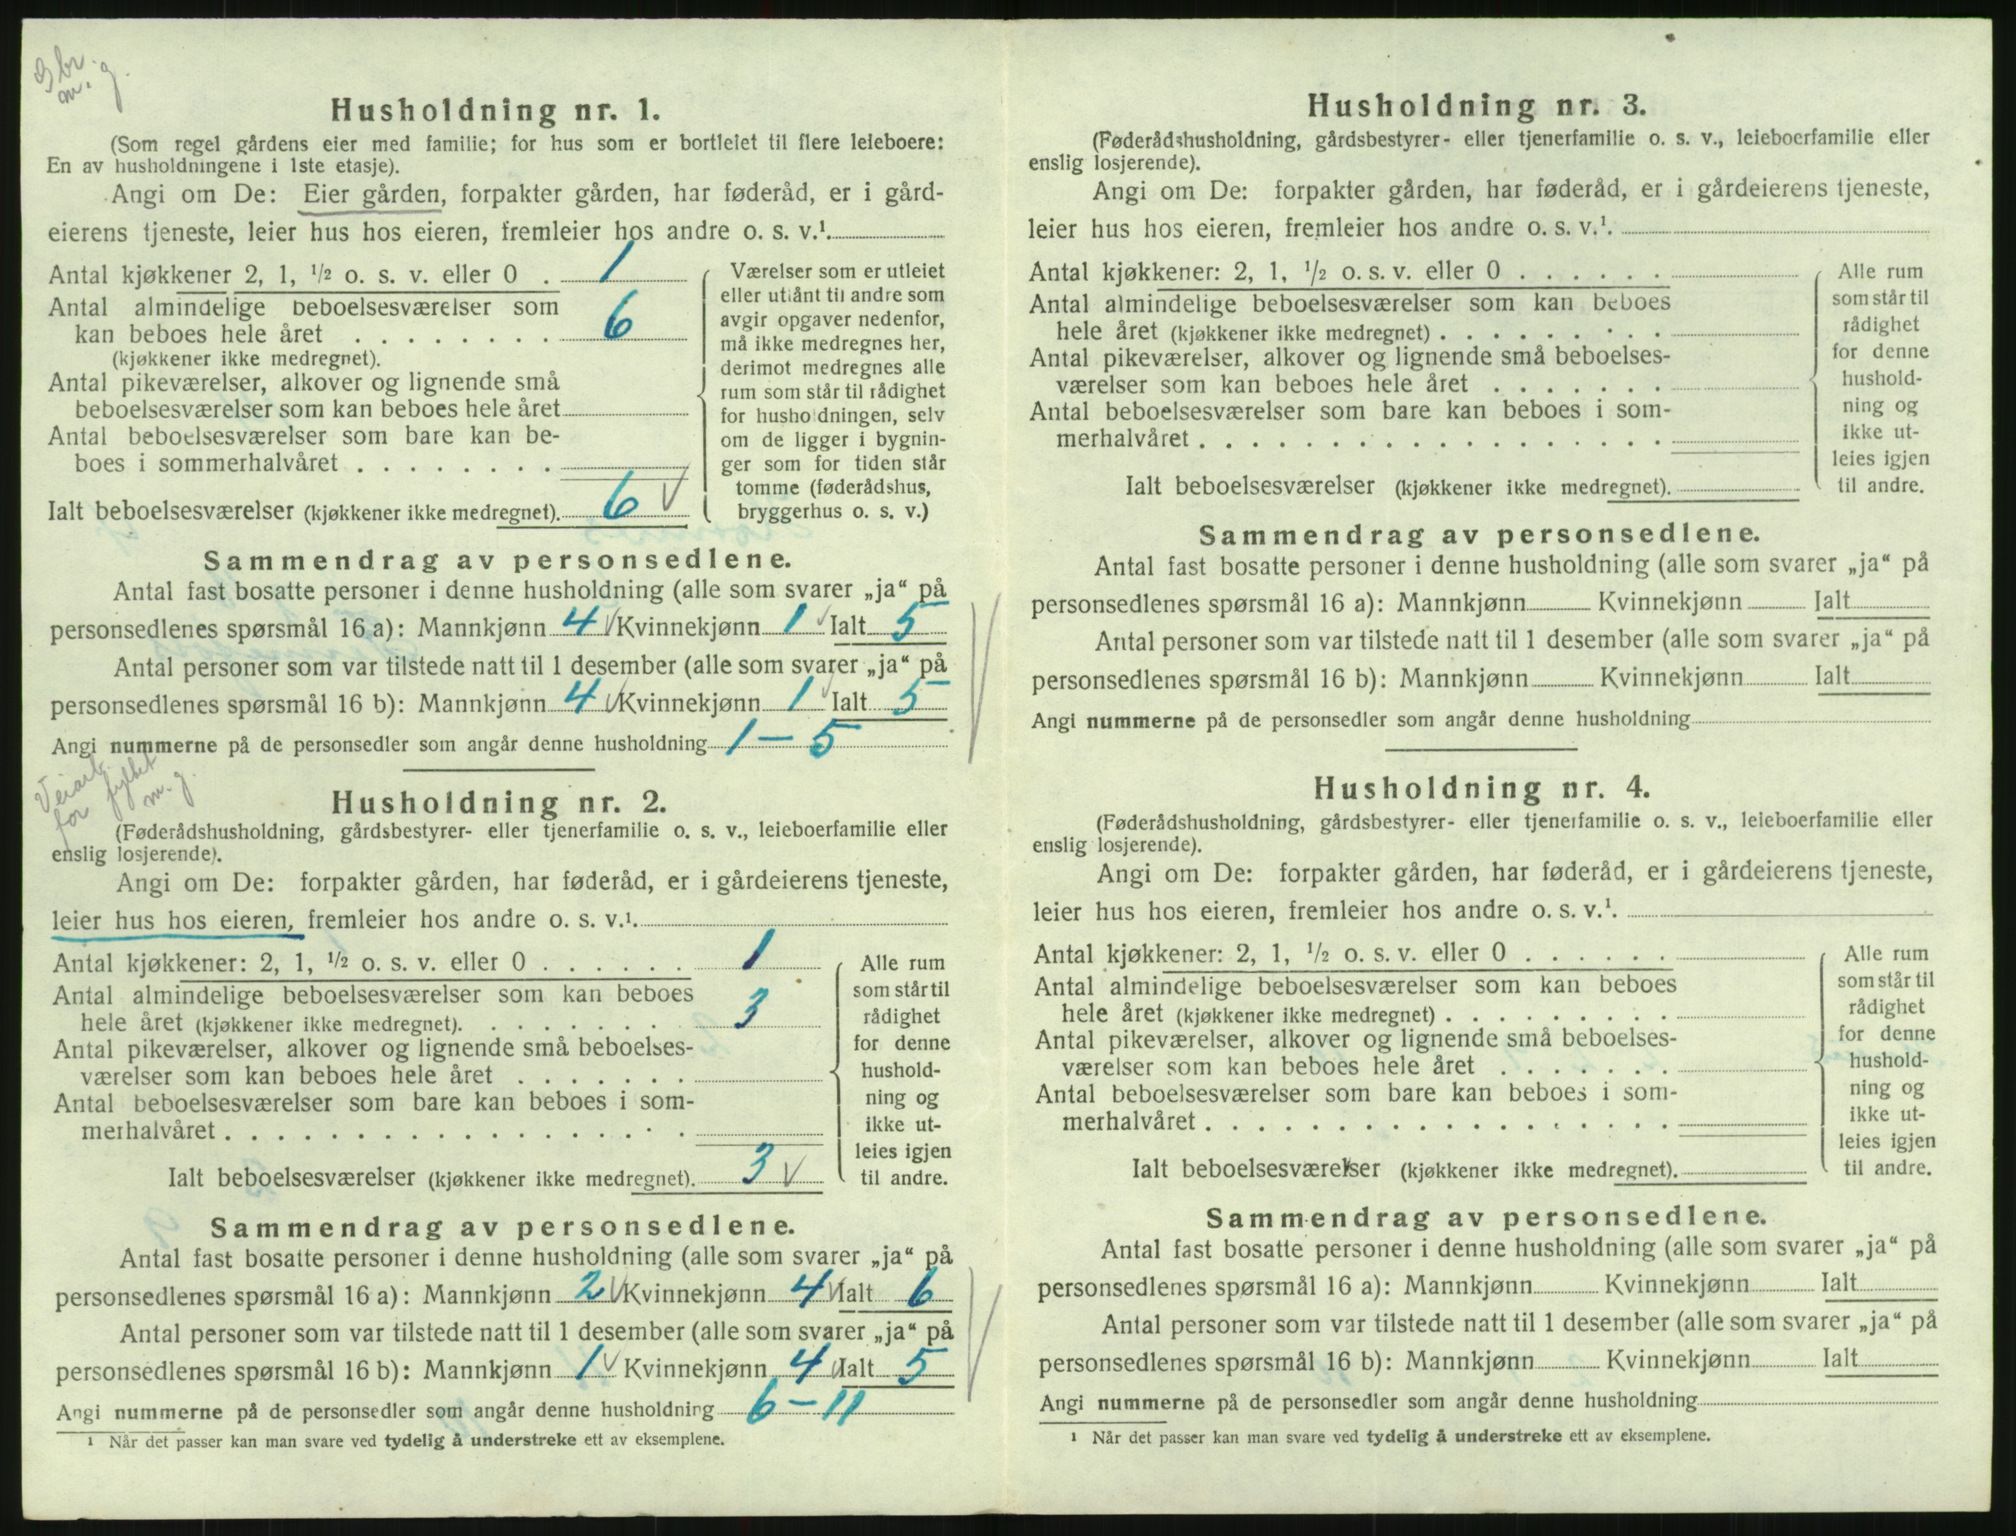 g br.
m. g.
Husholdning nr. 1.
(Som regel gårdens eier med familie; for hus som er bortleiet til flere leieboere:
En av husholdningene i 1ste etasje).
Angi om De: Eier gården, forpakter gården, har føderåd, er i gård-
eierens tjeneste, leier hus hos eieren, fremleier hos andre o. s. v.¹.
Antal kjøkkener 2, 1, ½ o. s. v. eller 0 . 1
Antal almindelige beboelsesværelser som
kan beboes hele året . . . . . . . . 6
(kjøkkener ikke medregnet).
Antal pikeværelser, alkover og lignende små
beboelsesværelser som kan beboes hele året
Antal beboelsesværelser som bare kan be-
boes i sommerhalvåret . . . . . . . .
Ialt beboelsesværelser (kjøkkener ikke medregnet). 6 √
Værelser som er utleiet
eller utlånt til andre som
avgir opgaver nedenfor,
må ikke medregnes her,
derimot medregnes alle
rum som står til rådighet
for husholdningen, selv
om de ligger i bygnin-
ger som for tiden står
tomme (føderådshus,
bryggerhus o. s. v.)
Sammendrag av personsedlene.
Antal fast bosatte personer i denne husholdning (alle som svarer „ja“ på
personsedlenes spørsmål 16 a): Mannkjønn 4 √ Kvinnekjønn 1 √ Ialt 5
Antal personer som var tilstede natt til 1 desember (alle som svarer „ja“ på
personsedlenes spørsmål 16 b): Mannkjønn 4 √ Kvinnekjønn 1 √ Ialt 5
Angi nummerne på de personsedler som angår denne husholdning 1 – 5
Veiarb.
for fylket
m. g.
Husholdning nr. 2.
(Føderådshusholdning, gårdsbestyrer- eller tjenerfamilie o. s. v., leieboerfamilie eller
enslig losjerende).
Angi om De: forpakter gården, har føderåd, er i gårdeierens tjeneste,
leier hus hos eieren, fremleier hos andre o. s. v.¹.
Antal kjøkkener: 2, 1, ½ o. s. v. eller 0 . . . . . . 1
Antal almindelige beboelsesværelser som kan beboes
hele året (kjøkkener ikke medregnet). . . . . . . . 3
Antal pikeværelser, alkover og lignende små beboelses-
værelser som kan beboes hele året . . . . . . .
Antal beboelsesværelser som bare kan beboes i som-
merhalvåret . . . . . . . . . . . . . . . . . .
Ialt beboelsesværelser (kjøkkener ikke medregnet). 3 √
Alle rum
som står til
rådighet
for denne
hushold-
ning og
ikke ut-
leies igjen
til andre.
Sammendrag av personsedlene.
Antal fast bosatte personer i denne husholdning (alle som svarer „ja“ på
personsedlenes spørsmål 16 a): Mannkjønn 2 √ Kvinnekjønn 4 √ Ialt 6
Antal personer som var tilstede natt til 1 desember (alle som svarer „ja“ på
personsedlenes spørsmål 16 b): Mannkjønn 1 √ Kvinnekjønn 4 √ Ialt 5
Angi nummerne på de personsedler som angår denne husholdning 6 – 11
¹ Når det passer kan man svare ved tydelig å understreke ett av eksemplene.
Husholdning nr. 3.
(Føderådshusholdning, gårdsbestyrer- eller tjenerfamilie o. s. v., leieboerfamilie eller
enslig losjerende).
Angi om De: forpakter gården, har føderåd, er i gårdeierens tjeneste,
leier hus hos eieren, fremleier hos andre o. s. v.¹.
Antal kjøkkener: 2, 1, ½ o. s. v. eller 0 . . . . . .
Antal almindelige beboelsesværelser som kan beboes
hele året (kjøkkener ikke medregnet) . . . . . . . . .
Antal pikeværelser, alkover og lignende små beboelses-
værelser som kan beboes hele året . . . . . . .
Antal beboelsesværelser som bare kan beboes i som-
merhalvåret . . . . . . . . . . . . . . . . . .
Ialt beboelsesværelser (kjøkkener ikke medregnet).
Alle rum
som står til
rådighet
for denne
hushold-
ning og
ikke ut-
leies igjen
til andre.
Sammendrag av personsedlene.
Antal fast bosatte personer i denne husholdning (alle som svarer „ja“ på
personsedlenes spørsmål 16 a): Mannkjønn Kvinnekjønn Ialt
Antal personer som var tilstede natt til 1 desember (alle som svarer „ja“ på
personsedlenes spørsmål 16 b): Mannkjønn Kvinnekjønn Ialt
Angi nummerne på de personsedler som angår denne husholdning
Husholdning nr. 4.
(Føderådshusholdning, gårdsbestyrer- eller tjenerfamilie o. s. v., leieboerfamilie eller
enslig losjerende).
Angi om De: forpakter gården, har føderåd, er i gårdeierens tjeneste,
leier hus hos eieren, fremleier hos andre o. s. v.¹.
Antal kjøkkener: 2, 1, ½ o. s. v. eller 0 . . . . . .
Antal almindelige beboelsesværelser som kan beboes
hele året (kjøkkener ikke medregnet) . . . . . . . . .
Antal pikeværelser, alkover og lignende små beboelses-
værelser som kan beboes hele året . . . . . . .
Antal beboelsesværelser som bare kan beboes i som-
merhalvåret . . . . . . . . . . . . . . . . . .
Ialt beboelsesværelser (kjøkkener ikke medregnet).
Alle rum
som står til
rådighet
for denne
hushold-
ning og
ikke ut-
leies igjen
til andre.
Sammendrag av personsedlene.
Antal fast bosatte personer i denne husholdning (alle som svarer „ja“ på
personsedlenes spørsmål 16 a): Mannkjønn Kvinnekjønn Ialt
Antal personer som var tilstede natt til 1 desember (alle som svarer „ja“ på
personsedlenes spørsmål 16 b): Mannkjønn Kvinnekjønn Ialt
Angi nummerne på de personsedler som angår denne husholdning
¹ Når det passer kan man svare ved tydelig å understreke ett av eksemplene.